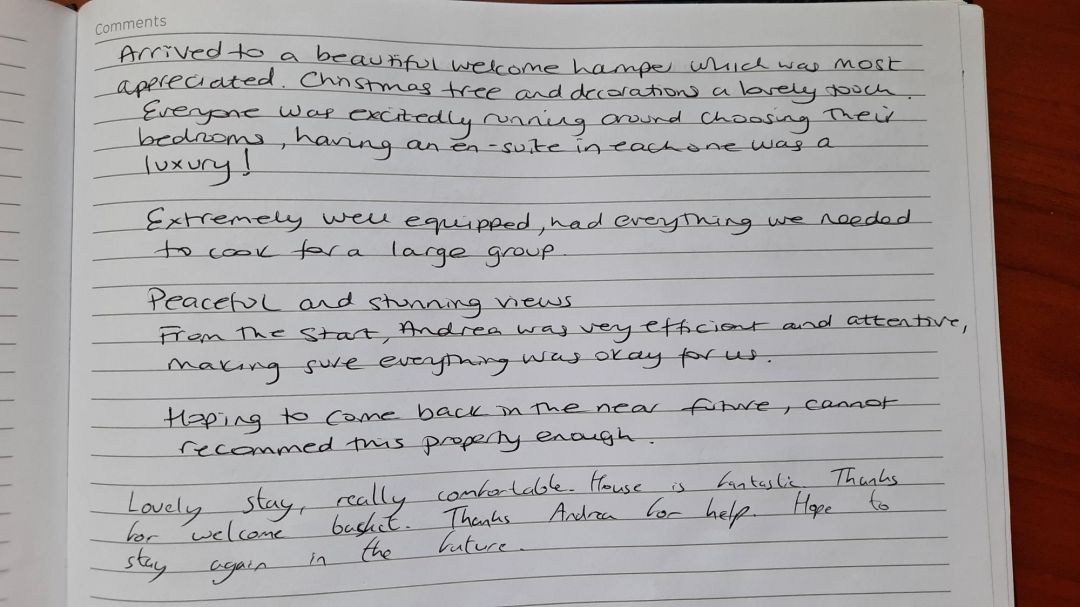 Comments
Arrived to a beautiful welcome hamper which was most
appreciated. Christmas tree and decorations a lovely touch.
Everyone was excitedly running around choosing their
bedrooms, having an en-suite in each one was a
luxury!
Extremely well equipped, had everything we needed
to cook for a large group.
Peaceful and stunning views
From the start, Andrea was very efficient and attentive,
making sure everything was okay for us.
Hoping to come back in the near future, cannot
recommed this property enough.
Lovely stay, really comfortable. House is fantastic. Thanks
for welcome basket. Thanks Andrea for help. Hope to
stay again in the future.